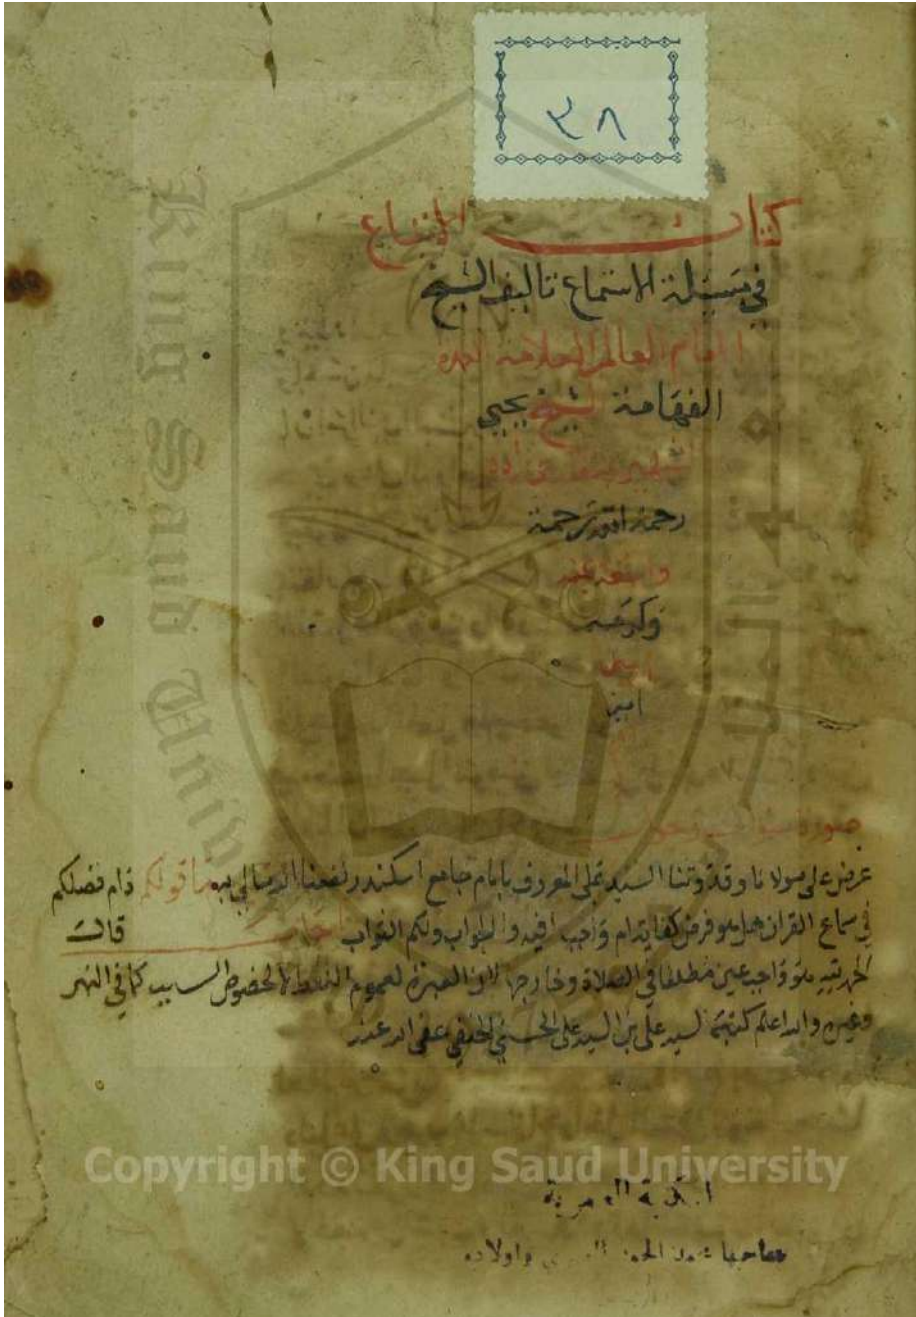 ٣٨
كتاب الانتفاع
في مسئلة الاستماع تاليف الشيخ
الامام العالم العلامة
الفهامة الشيخ يحيى
الشهير
رحمه الله رحمة
واسعة
وكرمه
امين
امين
صورة سوال وجواب
عرض على مولانا وقدوتنا السيد علي المعروف بامام جامع اسكندر نفعنا الله تعالى به ما قولكم دام فضلكم
في سماع القران هل هو فرض كفاية ام واجب افيدوا الجواب ولكم الثواب اجاب قالت
الحمد لله هو واجب عين مطلقا في الصلاة وخارجها لان العبرة لعموم اللفظ لا لخصوص السبب كما في النهر
وغيره والله اعلم كتبه السيد علي بن السيد علي الحسيني الحنفي عفى الله عنه
King Saud University
Copyright © King Saud University
المكتبة العمرية
صاحبها واولاده